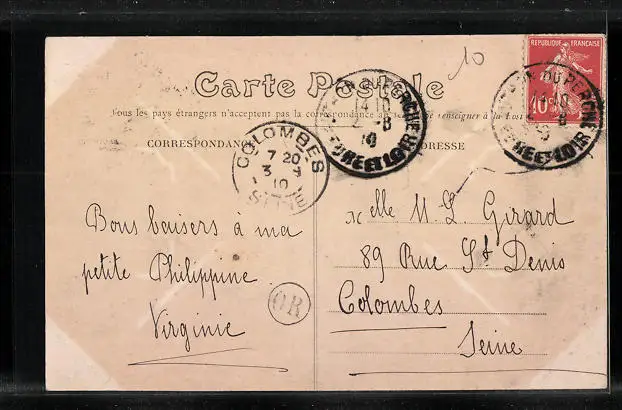 10
REPUBLIQUE FRANÇAISE
10c
Carte Postale
Tous les pays étrangers n'acceptent pas la correspondance au se renseigner à la
CORRESPONDANCE
ADRESSE
COLOMBES
7 20
3 9
10
SEINE
14 10
2 8
10
EURE ET LOIR
DU PERCHE
10
EURE ET LOIR
Bons baisers à ma
petite Philippine
Virginie
OR
Melle M. L. Girard
89 Rue St Denis
Colombes
Seine